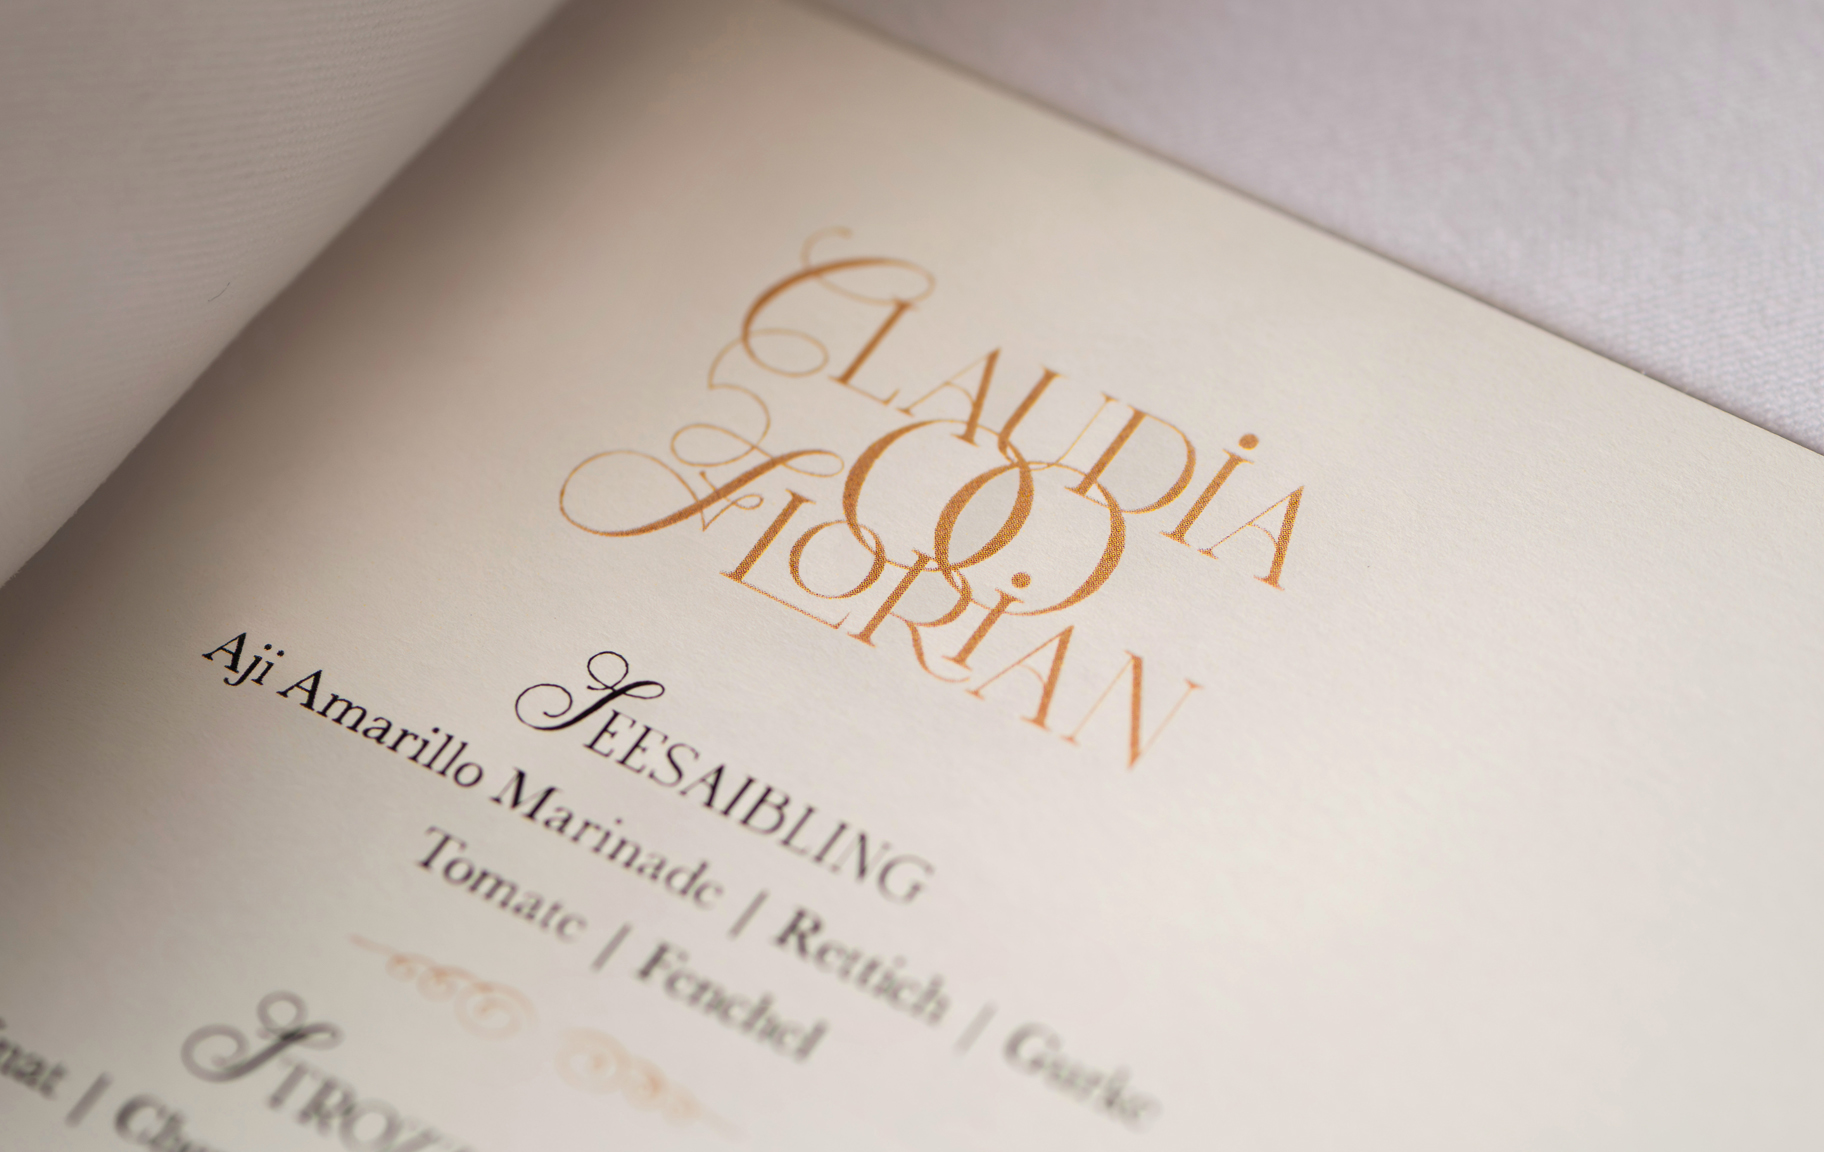 CLAUDIA
FLORIAN
SEESAIBLING
Aji Amarillo Marinade | Rettich | Gurke
Tomate | Fenchel